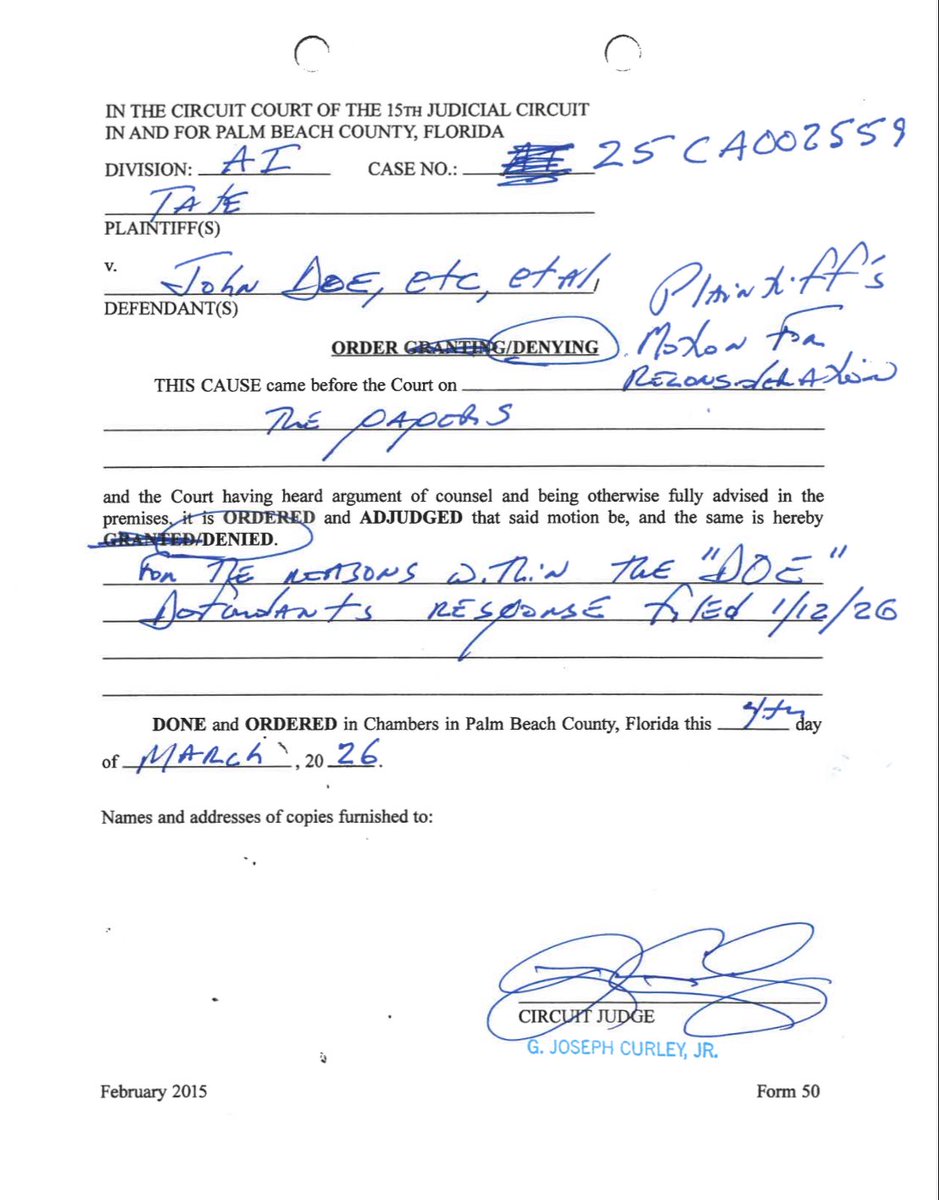 IN THE CIRCUIT COURT OF THE 15TH JUDICIAL CIRCUIT
IN AND FOR PALM BEACH COUNTY, FLORIDA
DIVISION: AI CASE NO.: 25 CA002559
TATE
PLAINTIFF(S)
v. John DOE, etc, et al,
DEFENDANT(S)
ORDER GRANTING/DENYING Plaintiff's
Motion For
Reconsideration
THIS CAUSE came before the Court on
The papers
and the Court having heard argument of counsel and being otherwise fully advised in the
premises, it is ORDERED and ADJUDGED that said motion be, and the same is hereby
GRANTED/DENIED.
For The reasons within the "DOE"
Defendants response filed 1/12/26
DONE and ORDERED in Chambers in Palm Beach County, Florida this 4th day
of MARCh, 20 26.
Names and addresses of copies furnished to:
CIRCUIT JUDGE
G. JOSEPH CURLEY, JR.
February 2015 Form 50